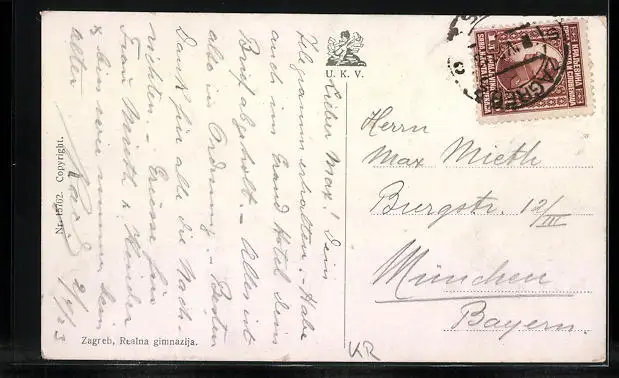 U. K. V.
Lieber Max! Dein
Telegramm erhalten. - Habe
auch im Grand Hotel Dein
Brief abgeholt. - Alles ist
also in Ordnung. - Besten
Dank für alle die Nach-
richten. - Grüsse für
Frau Mieth & Kinder
& bin wie immer dein
alter
2/9/23
Nr. 15762. Copyright.
Zagreb, Realna gimnazija.
Herrn
Max Mieth
Burgstr. 12/III
München
Bayern.
KR
ZAGREB